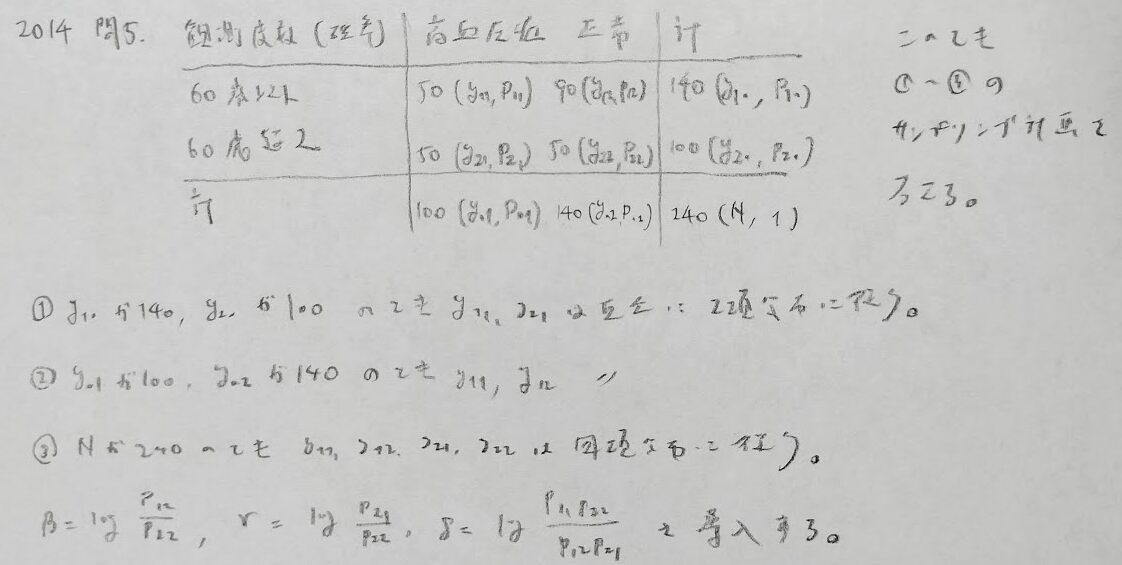 2014 問5. 観測度数(確率) 高血圧症 正常 計
60歳以上 50(y₁₁, P₁₁) 90(y₁₂, P₁₂) 140(y₁., P₁.)
60歳 50(y₂₁, P₂₁) 50(y₂₂, P₂₂) 100(y₂., P₂.)
計 100(y.₁, P.₁) 140(y.₂, P.₂) 240(N, 1)
このとき
①〜③の
サンプリング計画を
考える。
① y₁.が140, y₂.が100 のとき y₁₁, y₂₁は互いに2項分布に従う。
② y.₁が100, y.₂が140 のとき y₁₁, y₁₂ 〃
③ Nが240のとき y₁₁, y₁₂, y₂₁, y₂₂は四項分布に従う。
β = log P₁₂/P₂₂, γ = log P₂₁/P₂₂, δ = log P₁₁P₂₂/P₁₂P₂₁ を導入する。